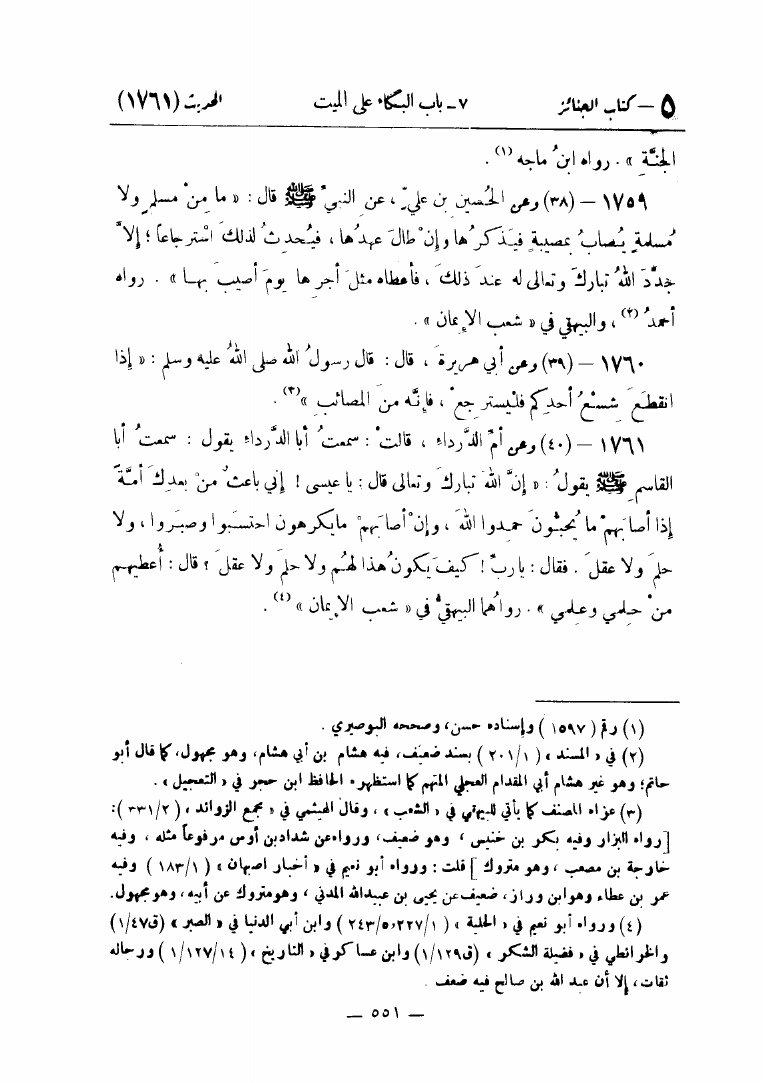 ٥ – كتاب الجنائز ٧ ـ باب البكاء على الميت الحديث (١٧٦١)
الجنَّة » . رواه ابنُ ماجه (١) .
١٧٥٩ – (٣٨) وعن الحُسين بن عليّ ، عن النبيّ ﷺ قال : « ما مِنْ مسلمٍ ولا
مُسلمةٍ يُصابُ بمصيبةٍ فيَذكرُها وإنْ طالَ عهدُها ، فيُحدِثُ لذلكَ استرجاعاً ؛ إلاَّ
جدَّدَ اللهُ تباركَ وتعالى له عندَ ذلكَ ، فأعطاه مثلَ أجرِها يومَ أصيبَ بهـا » . رواه
أحمدُ (٢) ، والبيهقي في « شعب الإيمان » .
١٧٦٠ – (٣٩) وعن أبي هريرةَ ، قال : قال رسولُ الله صلى اللهُ عليه وسلم : « إذا
انقطعَ شِسْعُ أحدِكم فليَسترجعْ ، فإنَّه منَ المصائبِ » (٣) .
١٧٦١ – (٤٠) وعن أمِّ الدَّرداءِ ، قالتْ : سمعتُ أبا الدَّرداءِ يقول : سمعتُ أبا
القاسمِ ﷺ يقولُ : « إنَّ اللهَ تباركَ وتعالى قال : يا عيسى ! إني باعثٌ منْ بعدِكَ أمةً
إذا أصابَهمْ ما يُحبُّونَ حمِدوا اللهَ ، وإنْ أصابَهمْ مايكرهون احتسَبوا وصبَروا ، ولا
حلمَ ولا عقلَ . فقال : ياربِّ ! كيفَ يكونُ هذا لهُم ولا حلمَ ولا عقلَ ؟ قال : أُعطيهم
منْ حِلمي وعِلمي » . رواهُما البيهقيُّ في « شعب الإيمان » (٤) .
(١) رقم ( ١٥٩٧ ) وإسناده حسن ، وصححه البوصيري .
(٢) في « المسند » ( ٢٠١/١ ) بسند ضعيف ، فيه هشام بن أبي هشام ، وهو مجهول ، كما قال أبو
حاتم ؛ وهو غير هشام أبي المقدام العجلي المتهم كما استظهره الحافظ ابن حجر في « التعجيل » .
(٣) عزاه المصنف كما يأتي للبيهقي في « الشعب » ، وقال الهيثمي في « مجمع الزوائد » ( ٣٣١/٢ ) :
[ رواه البزار وفيه بكر بن خنيس ، وهو ضعيف ، ورواه عن شداد بن أوس مرفوعاً مثله ، وفيه
خارجة بن مصعب ، وهو متروك ] قلت : ورواه أبو نعيم في « أخبار اصبهان » ( ١٨٣/١ ) وفيه
عمر بن عطاء وهو ابن وراز ، ضعيف عن يحيى بن عبيدالله المدني ، وهو متروك عن أبيه ، وهو مجهول .
(٤) ورواه أبو نعيم في « الحلية » ( ٢٢٧/١ و ٢٤٣/٥ ) وابن أبي الدنيا في « الصبر » (ق١/٤٧)
والخرائطي في « فضيلة الشكر » (ق١/١٢٩) وابن عساكر في « التاريخ » ( ١/١٢٧/١٤ ) ورجاله
ثقات ، إلا أن عبد الله بن صالح فيه ضعف .
– ٥٥١ –